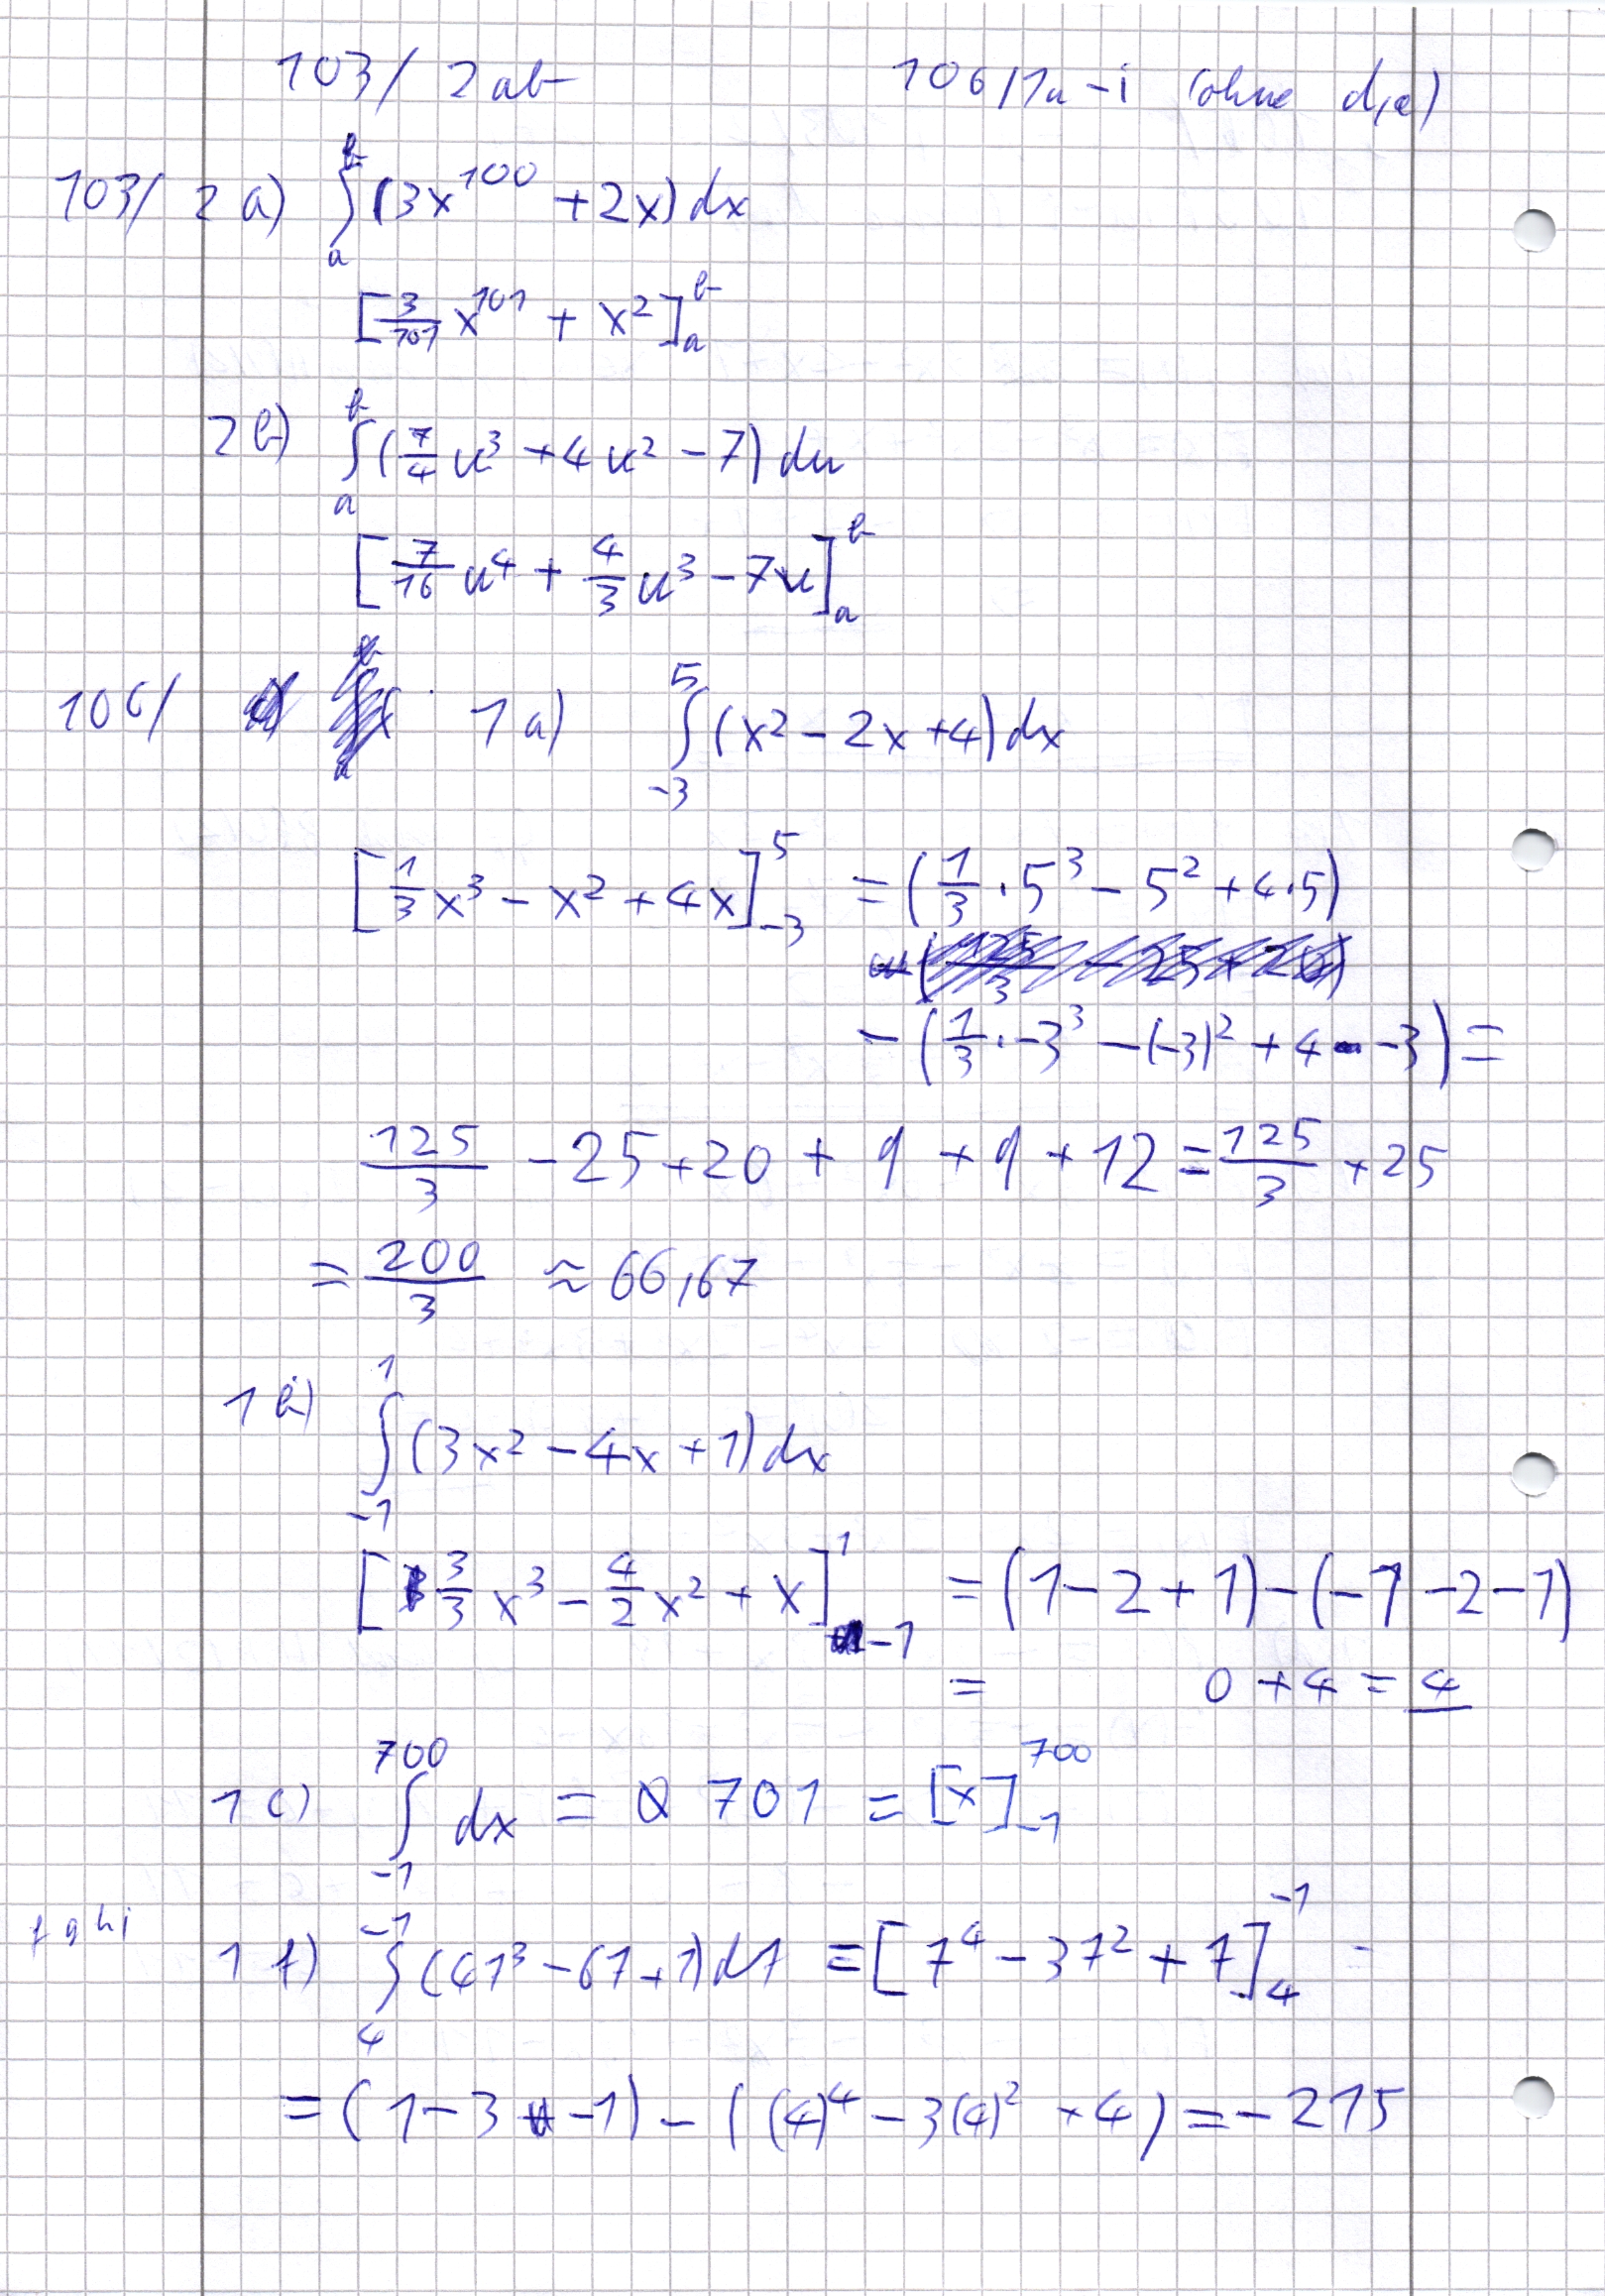 103/ 2ab 106/1a-i (ohne d,e)
103/ 2 a) ∫_a^b (3x^100 + 2x) dx
[3/101 x^101 + x²]_a^b
2b) ∫_a^b (7/4 u³ + 4u² - 7) du
[7/16 u⁴ + 4/3 u³ - 7u]_a^b
106/ 1a) ∫_-3^5 (x² - 2x + 4) dx
[1/3 x³ - x² + 4x]_-3^5 = (1/3 · 5³ - 5² + 4·5)
- (1/3 · -3³ - (-3)² + 4 · -3) =
125/3 - 25 + 20 + 9 + 9 + 12 = 125/3 + 25
= 200/3 ≈ 66,67
1b) ∫_-1^1 (3x² - 4x + 1) dx
[3/3 x³ - 4/2 x² + x]_-1^1 = (1 - 2 + 1) - (-1 - 2 - 1)
= 0 + 4 = 4
1c) ∫_-1^700 dx = 701 = [x]_-1^700
f g h i
1f) ∫_4^-1 (4τ³ - 6τ + 1) dτ = [τ⁴ - 3τ² + τ]_4^-1 =
= (1 - 3 - 1) - ((4)⁴ - 3(4)² + 4) = -215